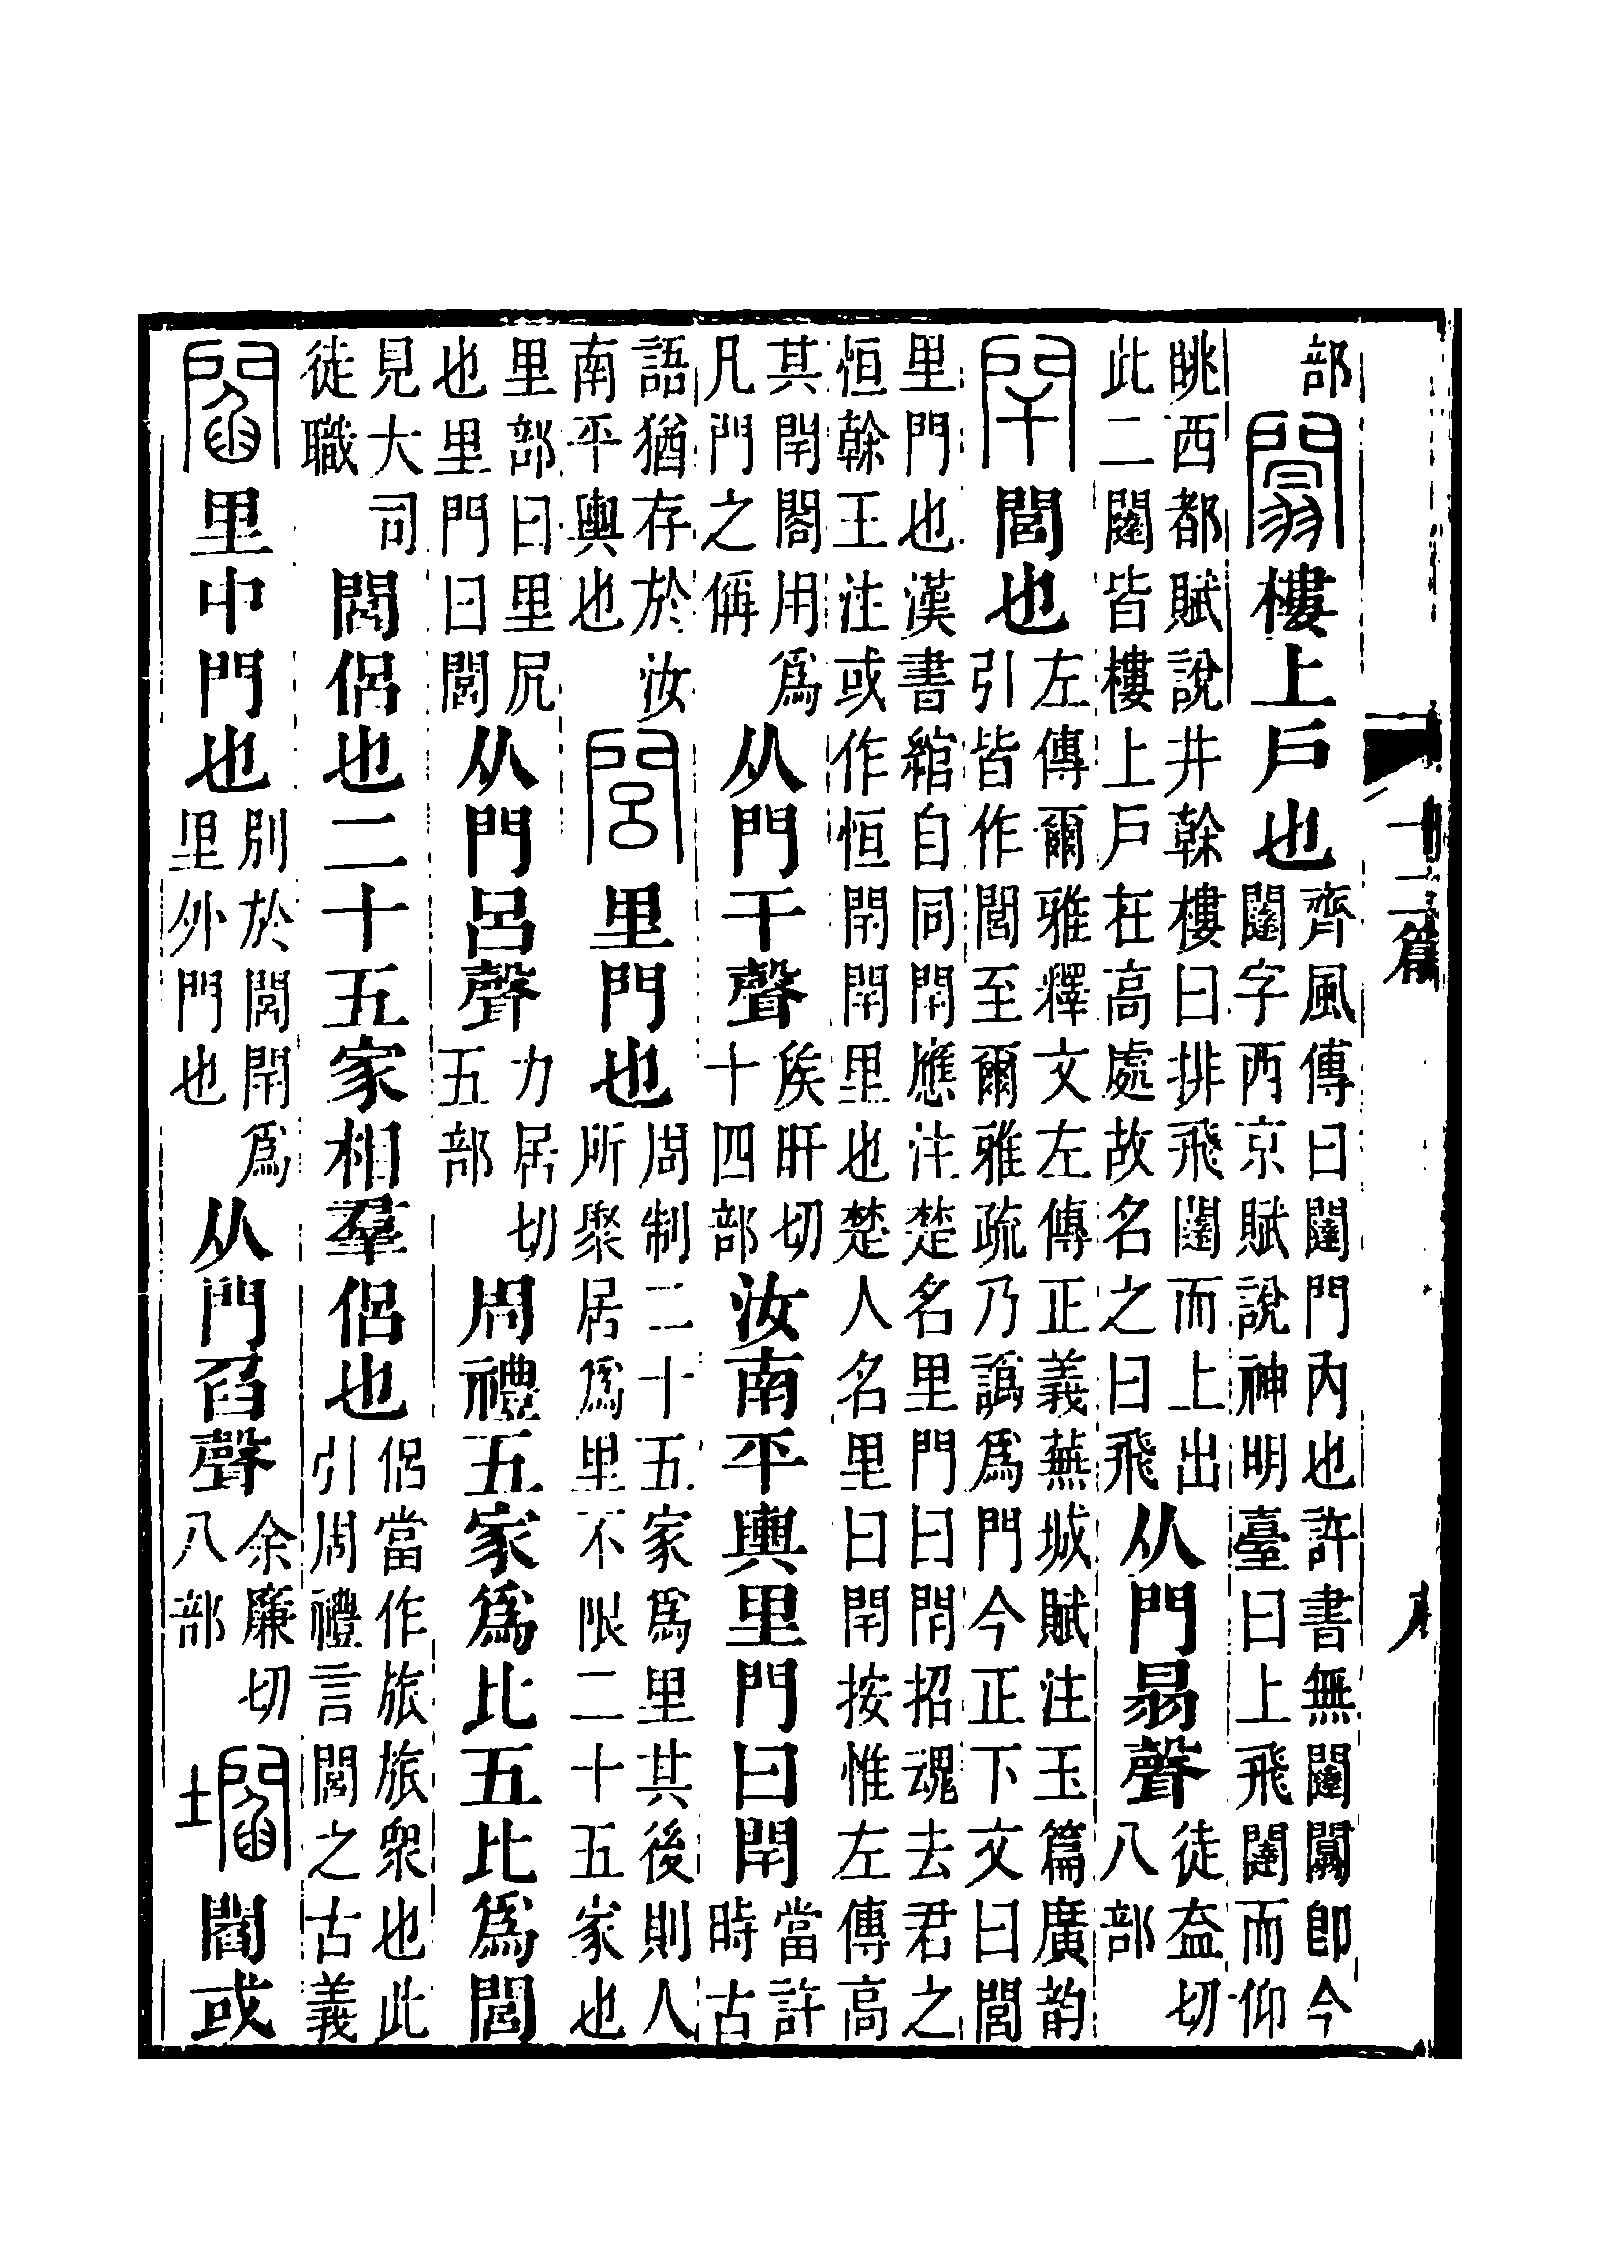 部闒樓上戶也齊風傳曰闥門內也許書無闥闒即今闥字西京賦說神明臺曰上飛闥而仰
眺西都賦說井榦樓曰排飛闥而上出此二闥皆樓上戶在高處故名之曰飛从門𦐇聲徒盍切八部
閈閭也左傳爾雅釋文左傳正義蕪城賦注玉篇廣韵引皆作閭至爾雅疏乃譌爲門今正下文曰閭
里門也漢書綰自同閈應注楚名里門曰閈招魂去君之恒榦王注或作恒閈閈里也楚人名里曰閈按惟左傳高
其閈閤用爲凡門之偁从門干聲矦旰切十四部汝南平輿里門曰閈當許時古
語猶存於汝南平輿也閭里門也周制二十五家爲里其後則人所聚居爲里不限二十五家也
里部曰里凥也里門曰閭从門呂聲力居切五部周禮五家爲比五比爲閭
見大司徒職閭侶也二十五家相羣侶也侶當作旅旅衆也此引周禮言閭之古義
閻里中門也別於閭閈爲里外門也从門臽聲余廉切八部壛閻或
十二篇